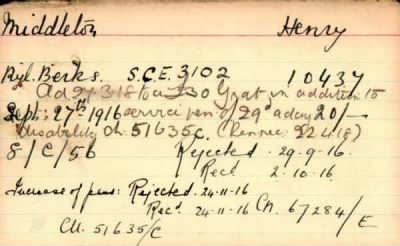 Middleton Henry
Ryl. Berks. S.C.E. 3102 10437
Ad 27318 to a £30 Grat in addition to
Sept: 27th 1916 service pen of 29d a day 20/-
disability Ch. 51635C. (Rennec: 22418)
8/C/56 Rejected. 29-9-16.
Recd 2-10-16.
Increase of pens: Rejected. 24-11-16
Recd. 24-11-16 Ch. 67284/E
Ch. 51635/C